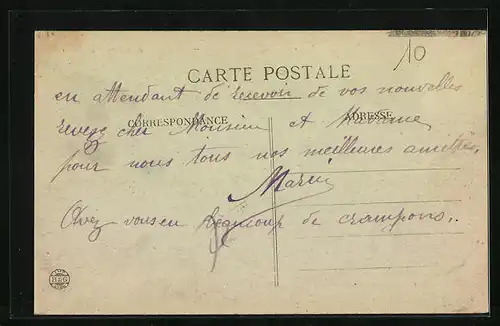 10
CARTE POSTALE
en attendant de recevoir de vos nouvelles
CORRESPONDANCE ADRESSE
recevez cher Monsieur et Madame
pour nous tous nos meilleures amitiés.
Marie
Avez vous eu beaucoup de crampons.